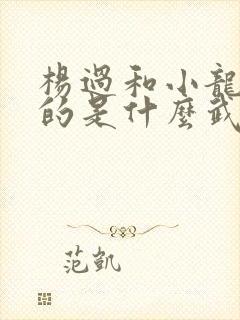 楊過和小龍
的是什麼武
范凱